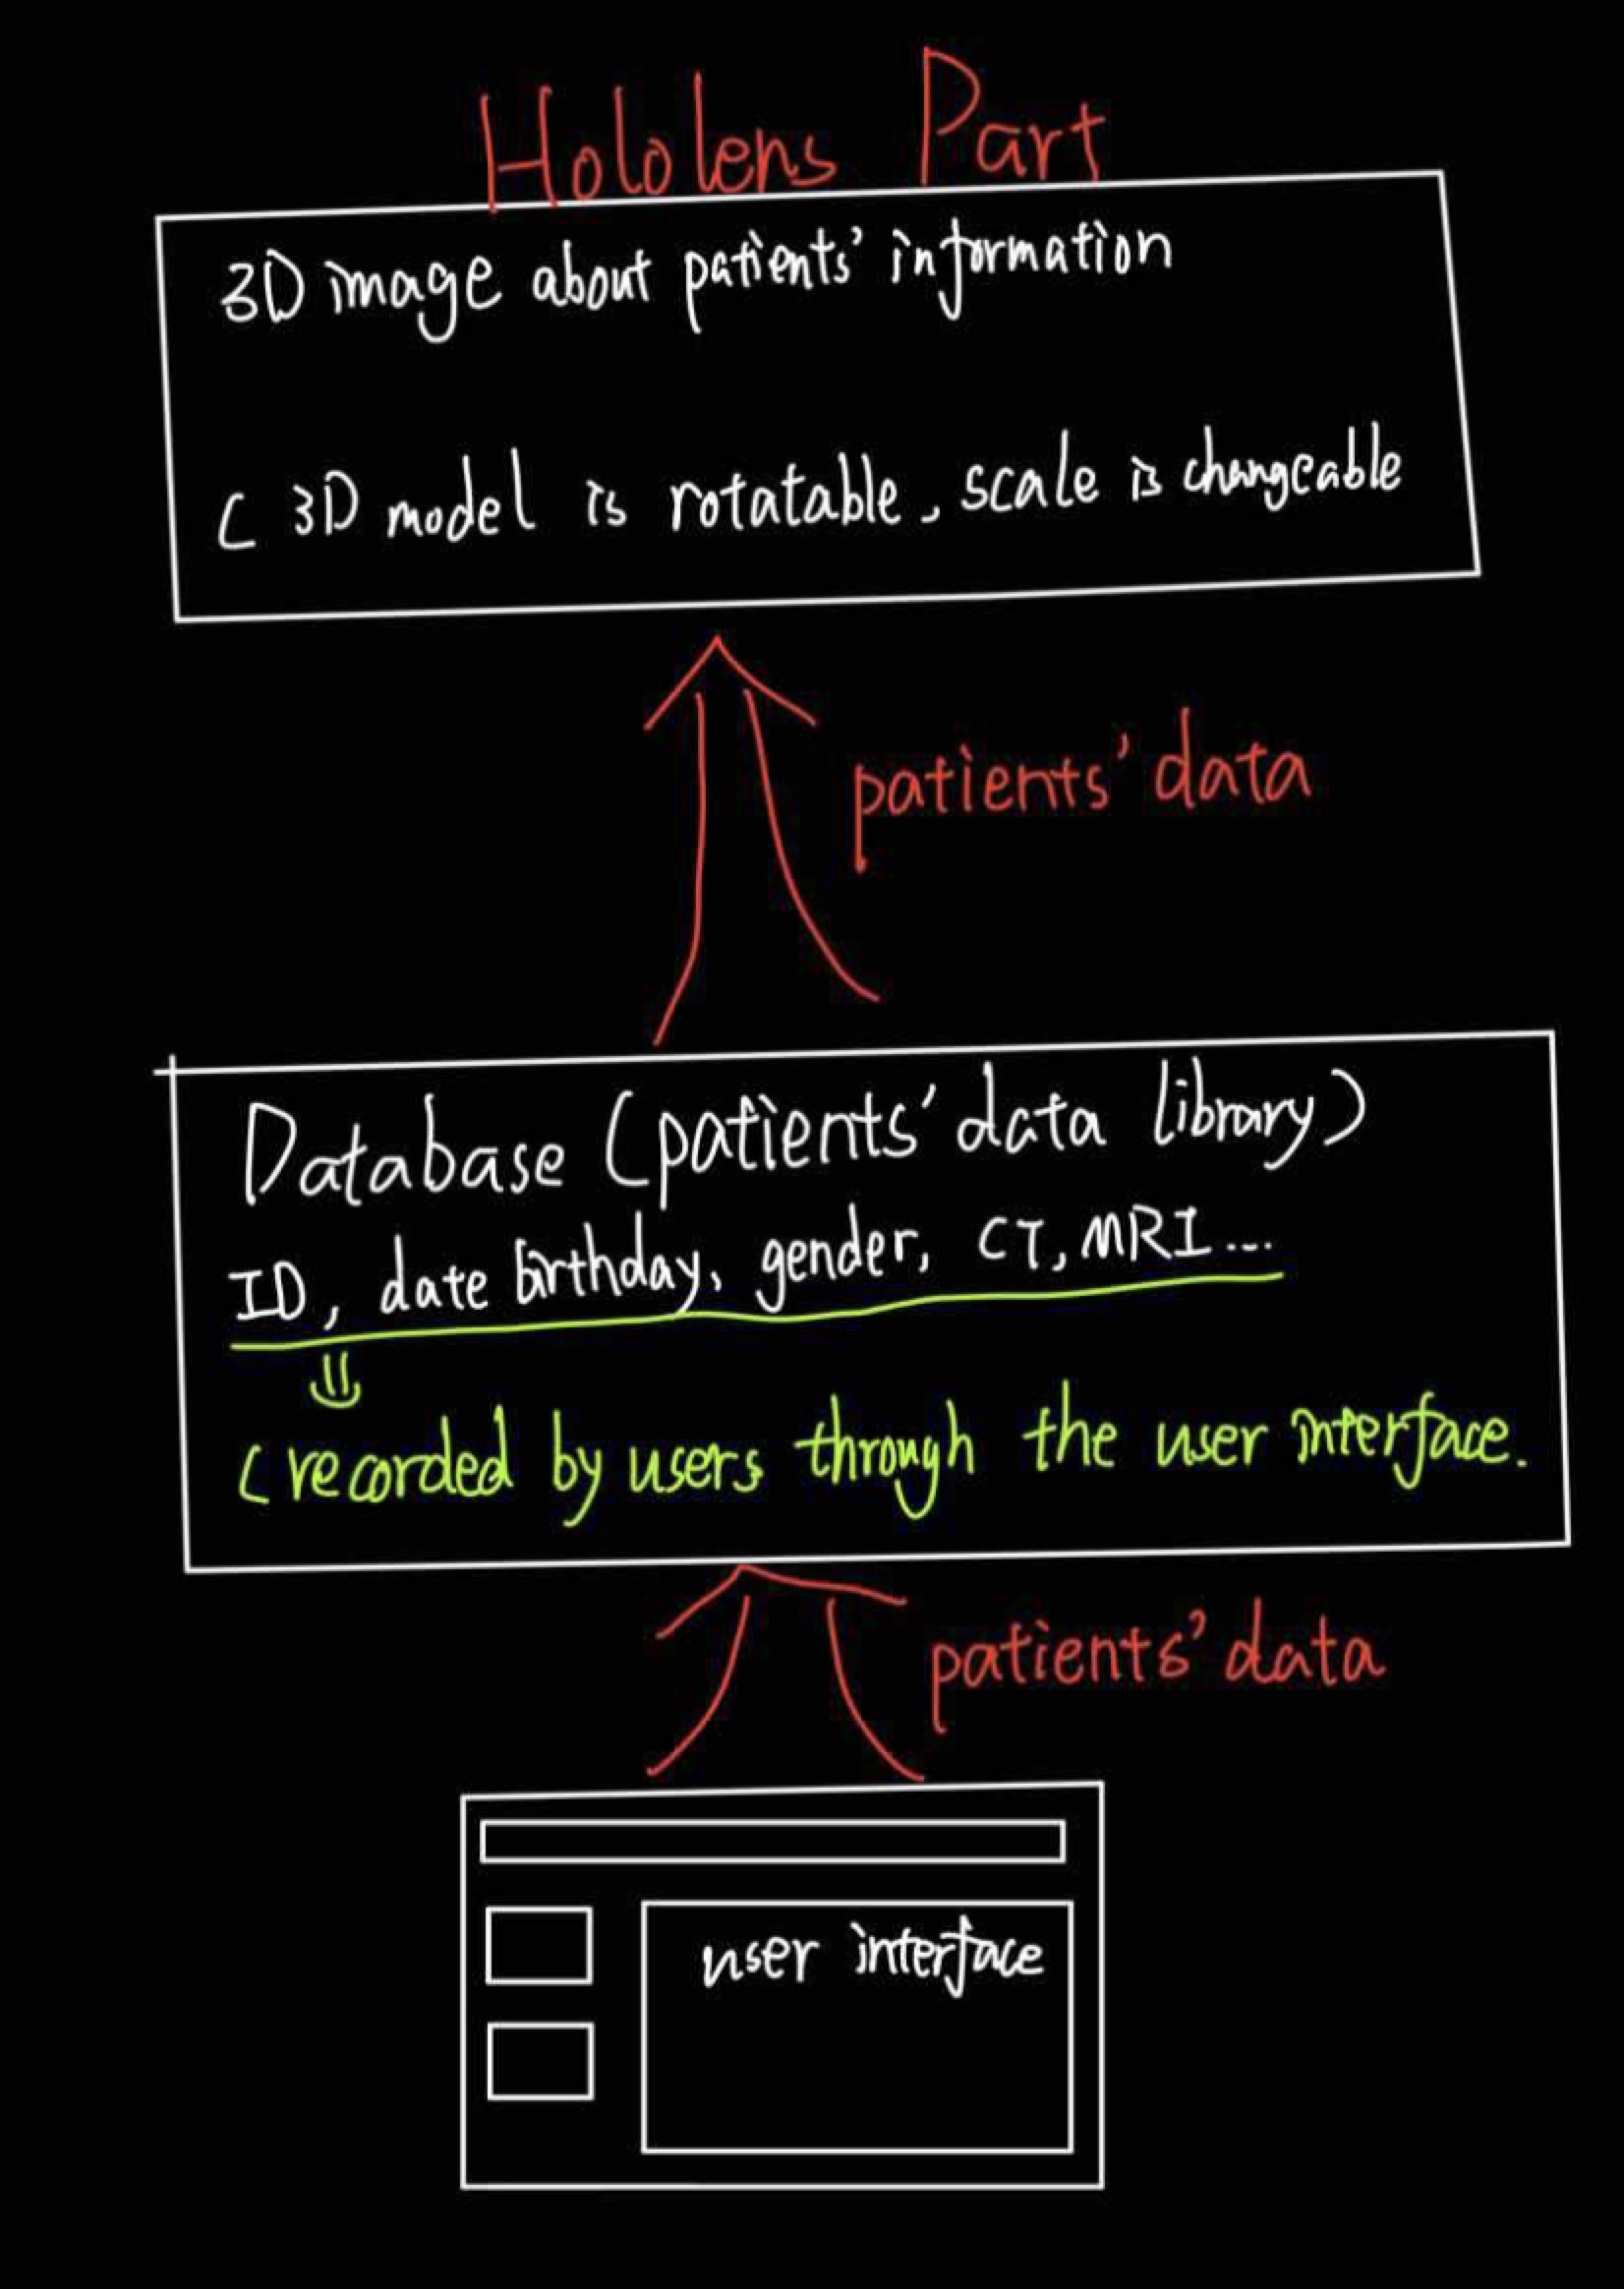 Hololens Part
3D image about patients' information
( 3D model is rotatable, scale is changeable
patients' data
Database (patients' data library)
ID, date birthday, gender, CT, MRI...
(recorded by users through the user interface.
patients' data
user interface